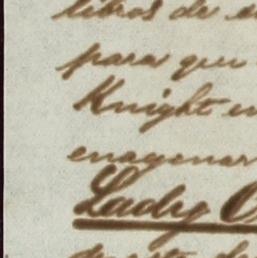 libros de
para que
Knight en
enagenar
Lady